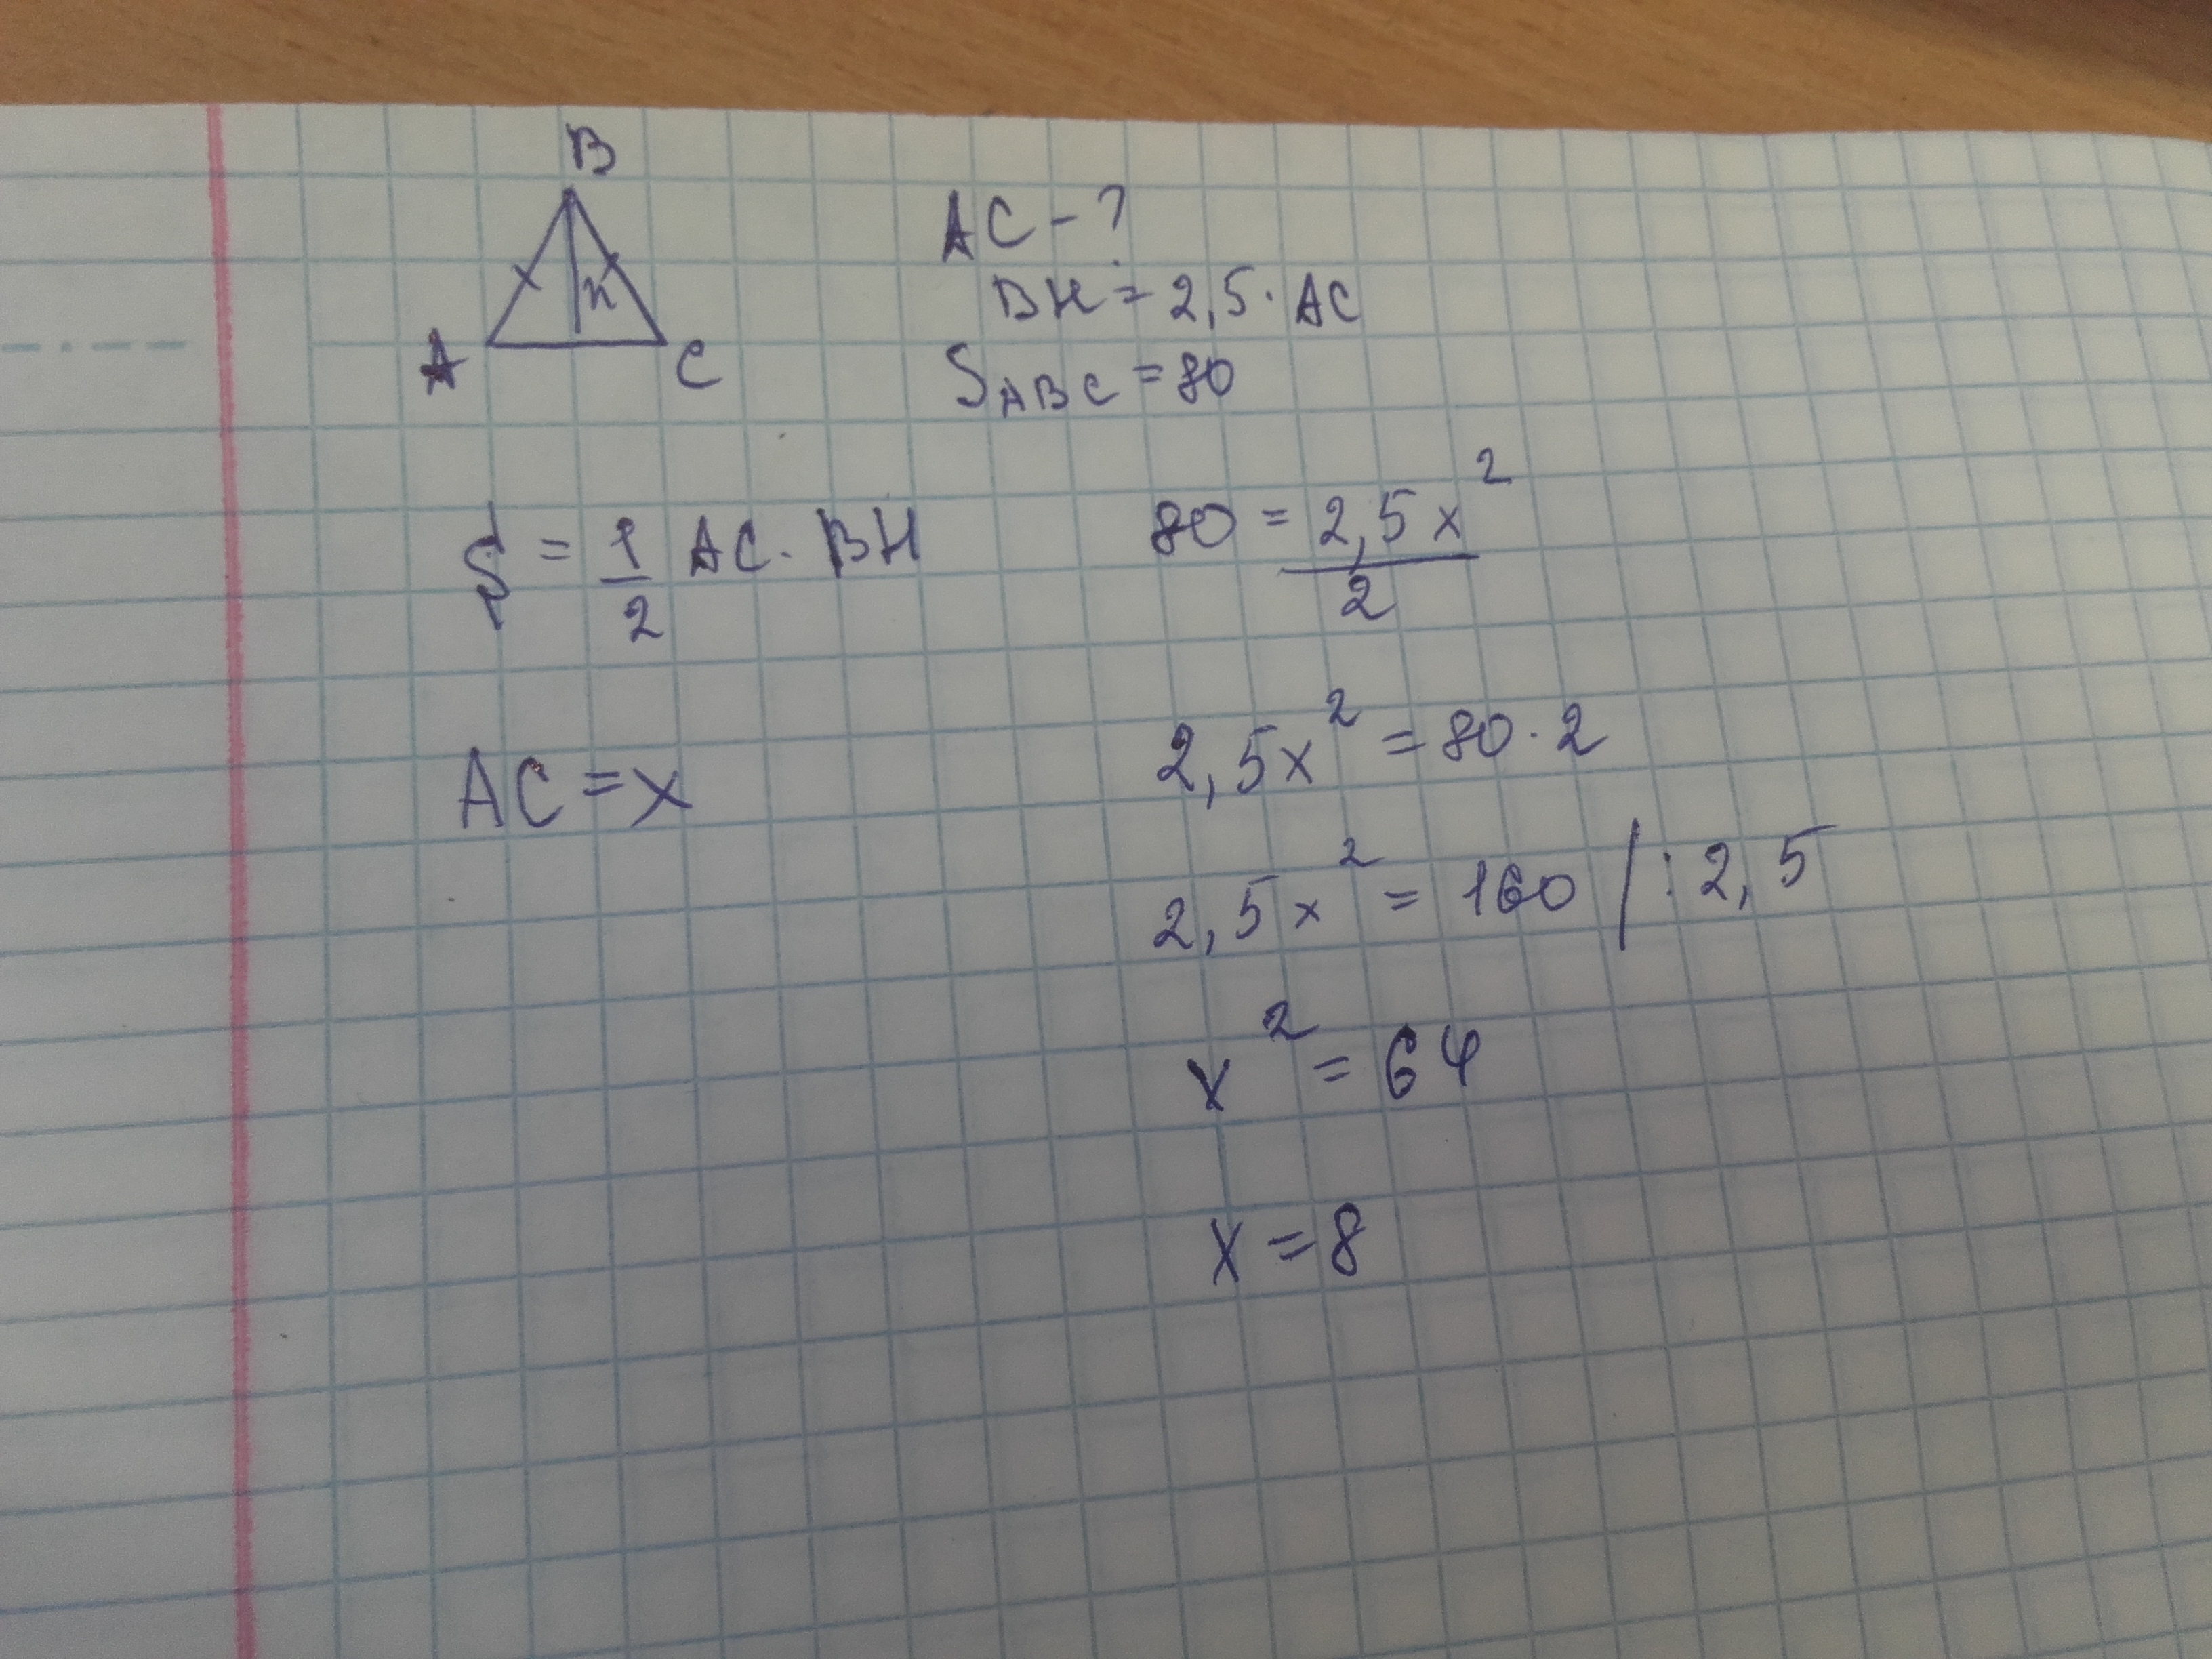 B
н
A
C
AC - ?
BH = 2,5 · AC
S ABC = 80
S = 1/2 AC · BH
AC = x
80 = 2,5x²/2
2,5x² = 80 · 2
2,5x² = 160 / : 2,5
x² = 64
x = 8